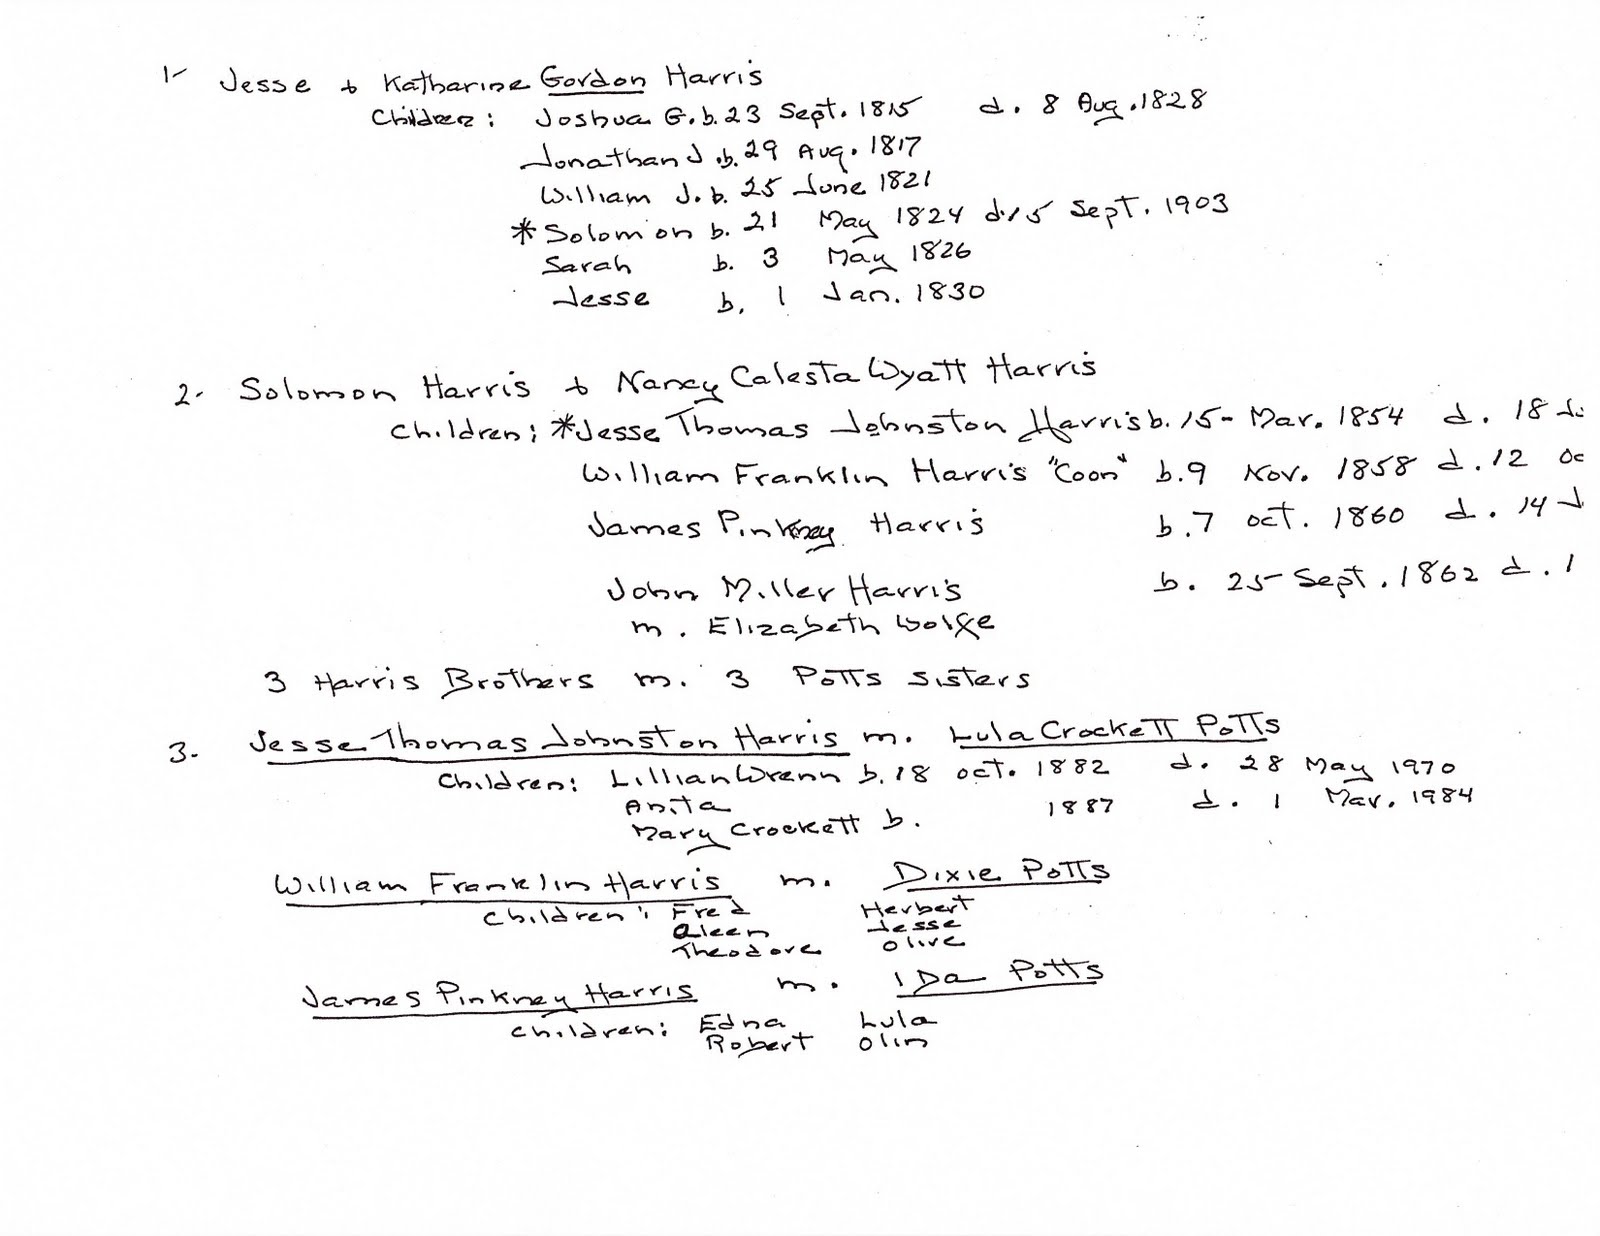 1- Jesse + Katharine Gordon Harris
Children: Joshua G. b. 23 Sept. 1815 d. 8 Aug. 1828
Jonathan J. b. 29 Aug. 1817
William J. b. 25 June 1821
*Solomon b. 21 May 1824 d. 15 Sept. 1903
Sarah b. 3 May 1826
Jesse b. 1 Jan. 1830
2- Solomon Harris + Nancy Calesta Wyatt Harris
Children: *Jesse Thomas Johnston Harris b. 15- Mar. 1854 d. 18
William Franklin Harris "Coon" b. 9 Nov. 1858 d. 12 Oc
James Pinkney Harris b. 7 Oct. 1860 d. 14 J
John Miller Harris b. 25 Sept. 1862 d. 1
m. Elizabeth Wolfe
3 Harris Brothers m. 3 Potts Sisters
3- Jesse Thomas Johnston Harris m. Lula Crockett Potts
Children: Lillian Wrenn b. 18 Oct. 1882 d. 28 May 1970
Anita 1887 d. 1 Mar. 1984
Mary Crockett b.
William Franklin Harris m. Dixie Potts
Children: Fred Herbert
Aleen Jesse
Theodore Olive
James Pinkney Harris m. Ida Potts
Children: Edna Lula
Robert Olin